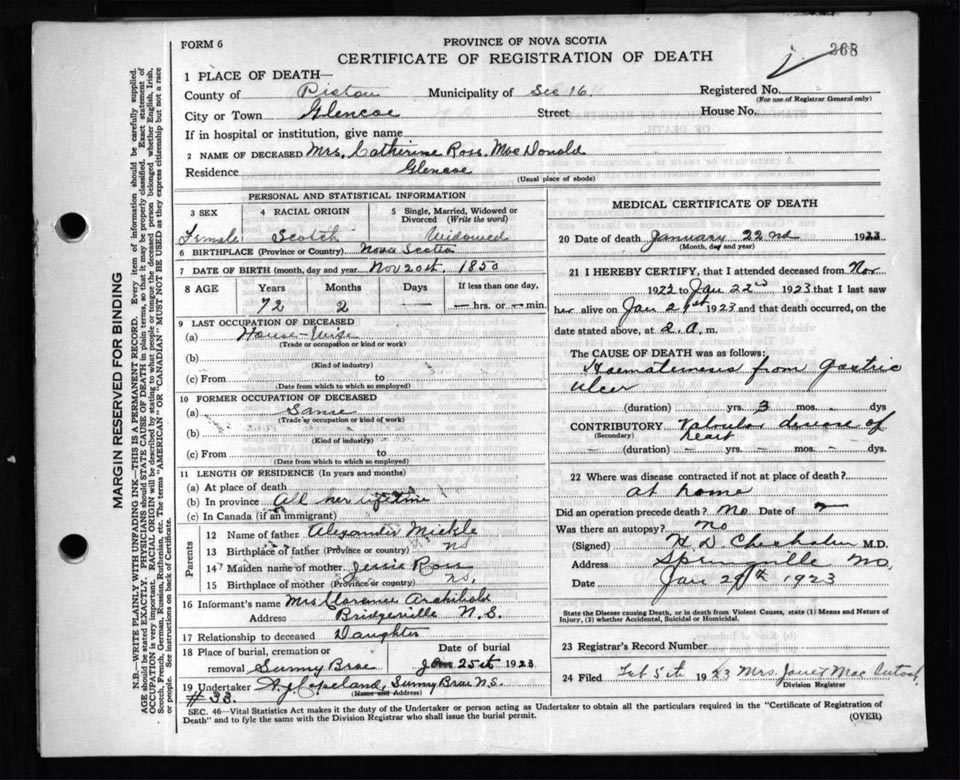 FORM 6
PROVINCE OF NOVA SCOTIA
CERTIFICATE OF REGISTRATION OF DEATH
268
1 PLACE OF DEATH—
County of Pictou Municipality of Sec 16. Registered No.
(For use of Registrar General only)
City or Town Glencoe Street House No.
If in hospital or institution, give name
2 NAME OF DECEASED Mrs. Catherine Ross MacDonald
Residence Glencoe
(Usual place of abode)
PERSONAL AND STATISTICAL INFORMATION
3 SEX Female
4 RACIAL ORIGIN Scotch
5 Single, Married, Widowed or Divorced (Write the word) Widowed
6 BIRTHPLACE (Province or Country) Nova Scotia
7 DATE OF BIRTH (month, day and year) Nov 20th 1850
8 AGE Years 72 Months 2 Days — If less than one day, — hrs. or — min.
9 LAST OCCUPATION OF DECEASED
(a) House-Wife
(Trade or occupation or kind of work)
(b)
(Kind of industry)
(c) From to
(Date from which to which so employed)
10 FORMER OCCUPATION OF DECEASED
(a) Same
(Trade or occupation or kind of work)
(b)
(Kind of industry)
(c) From to
(Date from which to which so employed)
11 LENGTH OF RESIDENCE (In years and months)
(a) At place of death
(b) In province All her lifetime
(c) In Canada (if an immigrant)
Parents
12 Name of father Alexander Mickle
13 Birthplace of father (Province or country) NS
14 Maiden name of mother Jessie Ross
15 Birthplace of mother (Province or country) NS.
16 Informant's name Mrs Clarence Archibald
Address Bridgeville N.S.
17 Relationship to deceased Daughter
18 Place of burial, cremation or removal Sunny Brae
Date of burial Jan 25th 1923
19 Undertaker A J Copeland, Sunny Brae N.S.
(Name and Address)
#33.
MEDICAL CERTIFICATE OF DEATH
20 Date of death January 22nd 1923
(Month, day and year)
21 I HEREBY CERTIFY, that I attended deceased from Nov
1922 to Jan 22nd 1923 that I last saw
her alive on Jan 21st 1923 and that death occurred, on the
date stated above, at 2 A. m.
The CAUSE OF DEATH was as follows:
Haematemesis from gastric
ulcer
(duration) yrs. 3 mos. dys
CONTRIBUTORY Valvular disease of
(Secondary) heart
(duration) — yrs. — mos. — dys
22 Where was disease contracted if not at place of death?
at home
Did an operation precede death? No Date of
Was there an autopsy? no
(Signed) H D Chisholm M.D.
Address Springville NS
Date Jan 29th 1923
State the Disease causing Death, or in death from Violent Causes, state (1) Means and Nature of
Injury, (2) whether Accidental, Suicidal or Homicidal.
23 Registrar's Record Number
24 Filed Feb 5th 1923 Mrs Janet MacIntosh
Division Registrar
SEC. 46—Vital Statistics Act makes it the duty of the Undertaker or person acting as Undertaker to obtain all the particulars required in the "Certificate of Registration of
Death" and to fyle the same with the Division Registrar who shall issue the burial permit.
(OVER)
MARGIN RESERVED FOR BINDING
N.B.—WRITE PLAINLY WITH UNFADING INK—THIS IS A PERMANENT RECORD. Every item of information should be carefully supplied.
AGE should be stated EXACTLY. PHYSICIANS should STATE CAUSE OF DEATH in plain terms, so that it may be properly classified. Exact statement of
OCCUPATION is very important. RACIAL ORIGIN will be described by stating to what people or tongue the deceased person belonged whether English, Irish,
Scotch, French, German, Russian, Ruthenian, etc. The terms "AMERICAN" OR "CANADIAN" MUST NOT BE USED as they express citizenship but not a race
or people. See instructions on back of Certificate.